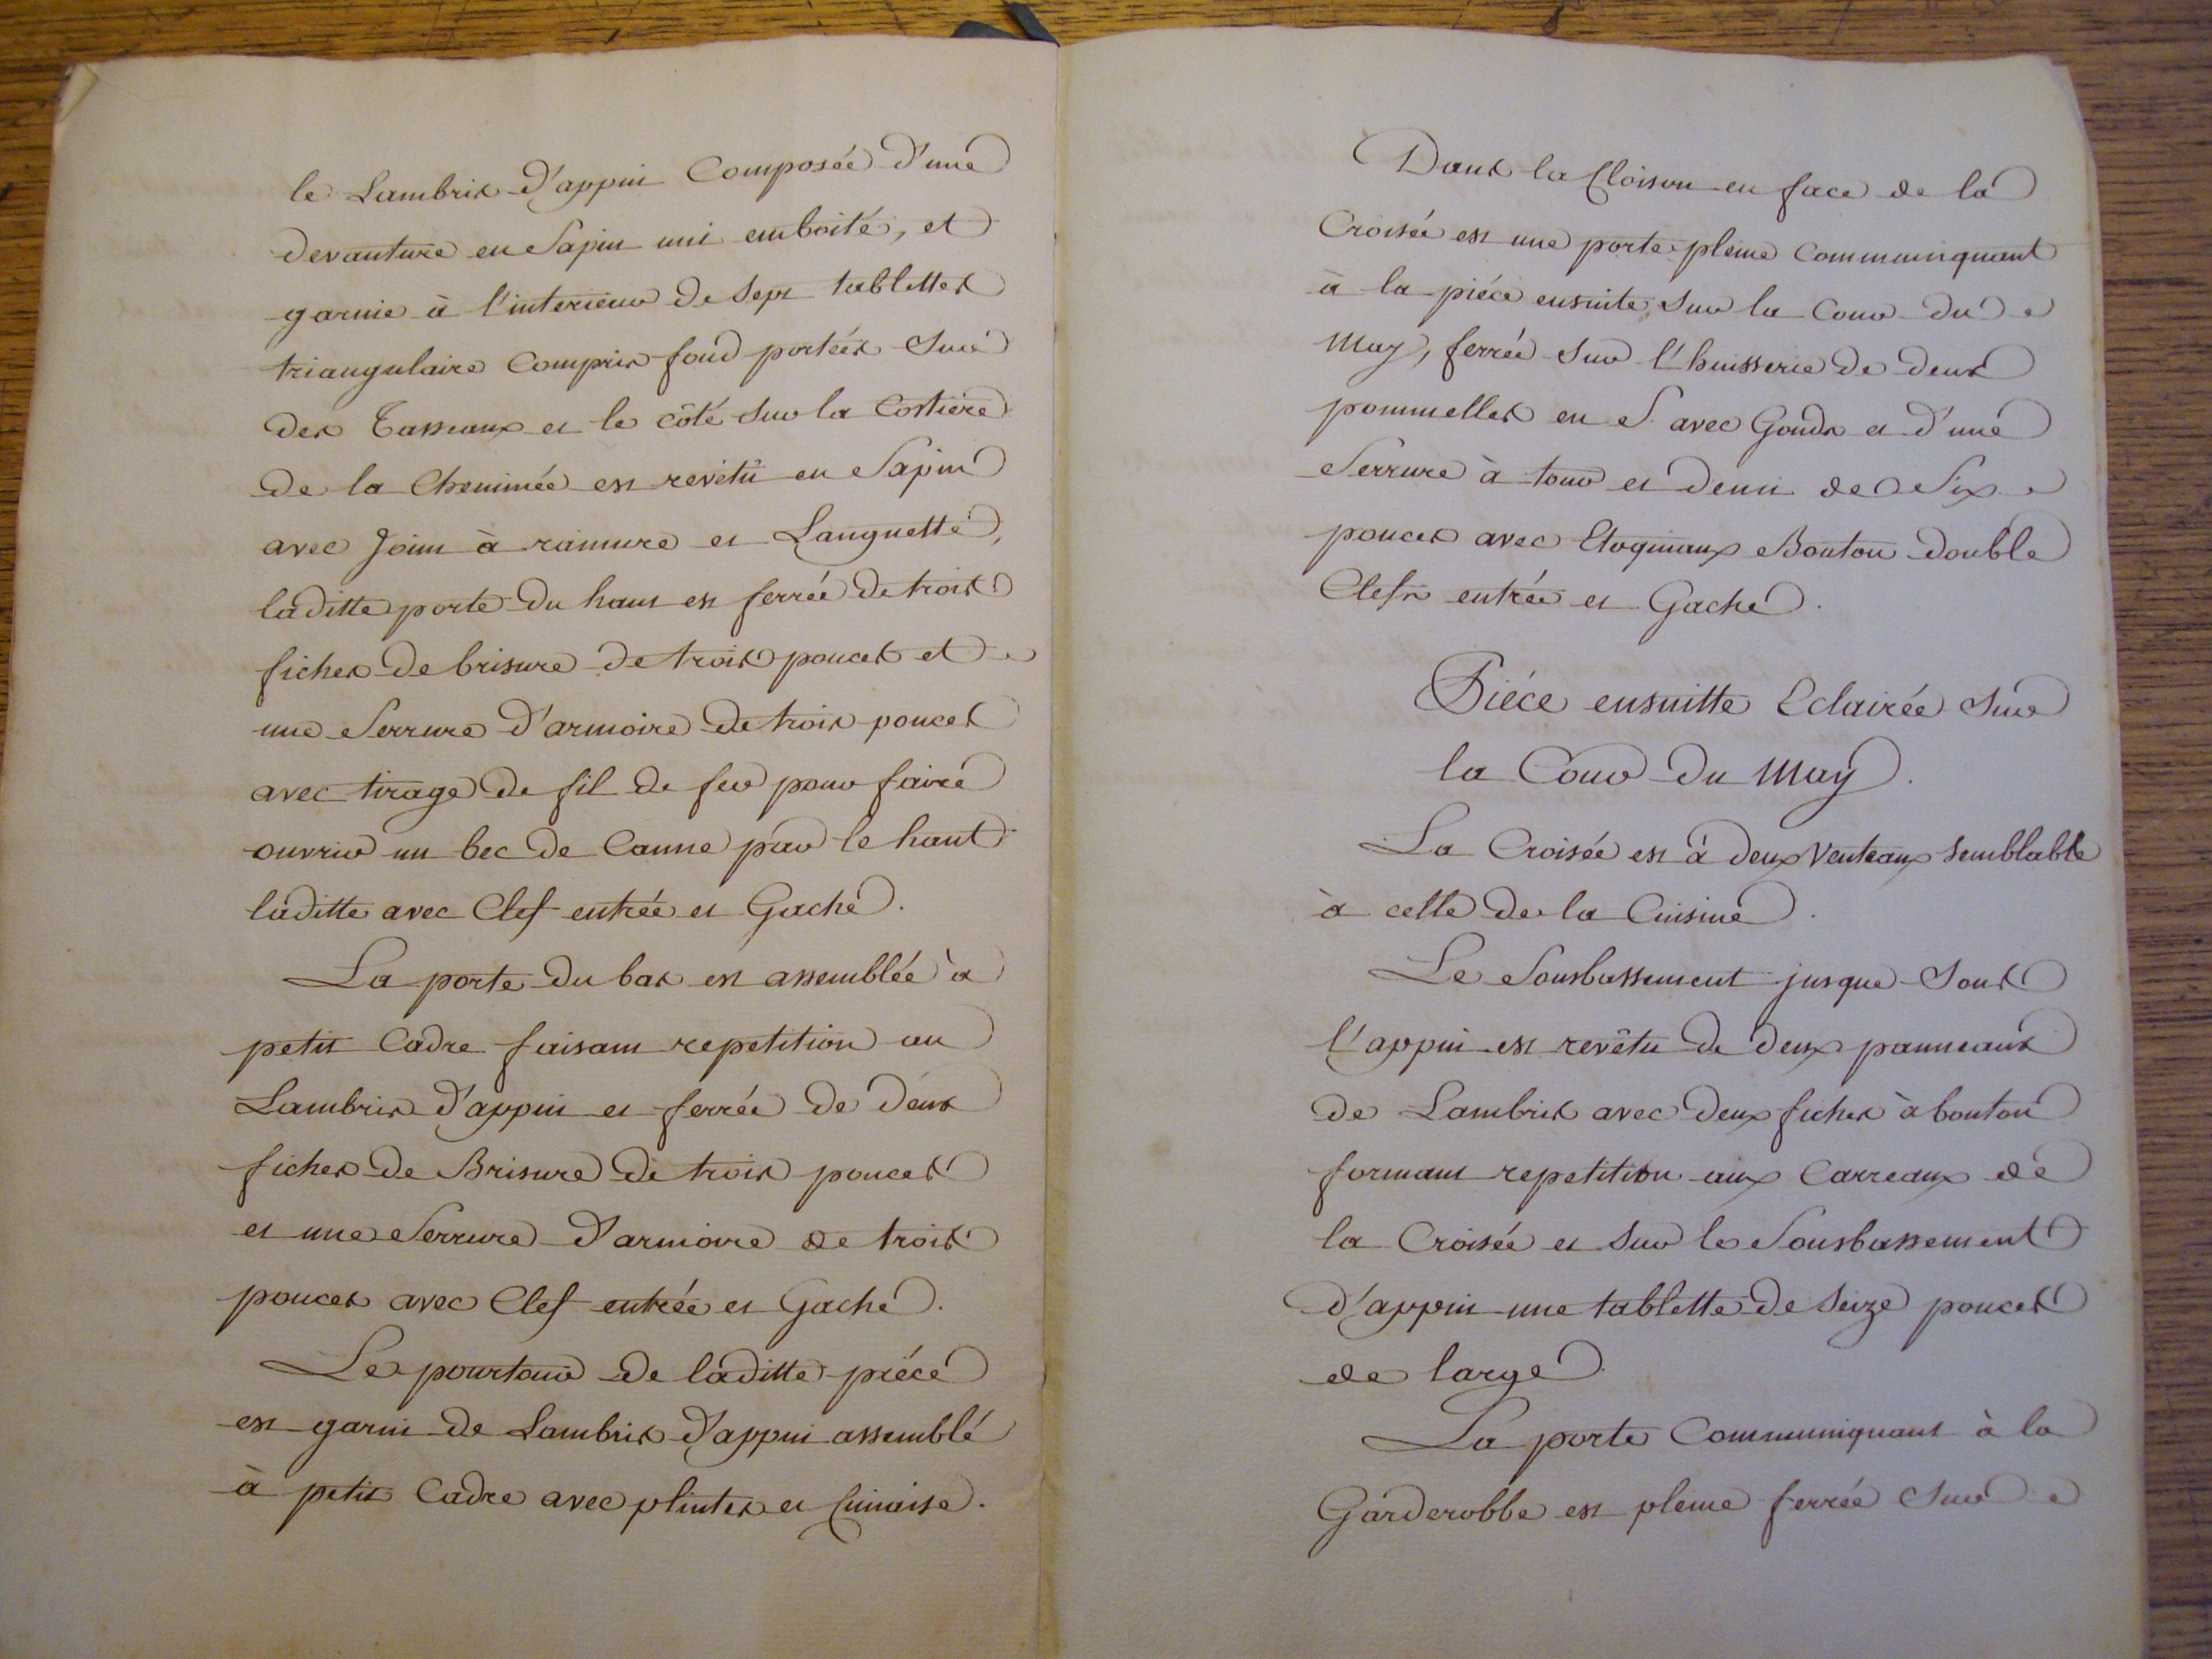 le Lambris d'appui Composée d'une
devanture en Sapin uni emboité, et
garnie à l'interieur de Sept tablettes
triangulaire Compris fond portées Sur
des Tasseaux et le côté Sur la Costiere
de la Cheminée est revêtu en Sapin
avec Joint à rainure et Languette,
laditte porte du haut est ferrée de trois
fiches de brisure de trois pouces et
une Serrure d'armoire de trois pouces
avec tirage de fil de fer pour faire
ouvrir un bec de Canne par le haut
laditte avec Clef entrée et Gache.
La porte du bas est assemblée à
petit Cadre faisant repetition au
Lambris d'appui et ferrée de deux
fiches de Brisure de trois pouces
et une Serrure d'armoire de trois
pouces avec Clef entrée et Gache.
Le pourtour de laditte piéce
est garni de Lambris d'appui assemblé
à petit Cadre avec plintes et Cimaise.
Dans la Cloison en face de la
Croisée est une porte pleine Communiquant
à la piéce ensuite Sur la Cour du
May, ferrée Sur l'huisserie de deux
pommelles en S avec Gonds et d'une
Serrure à tour et demi de Six
pouces avec Etoquiaux Bouton double
Clefs entrée et Gache.
Piéce ensuitte Eclairée Sur
la Cour du May.
La Croisée est à deux Venteaux Semblable
à celle de la Cuisine.
Le Sousbassement jusque Sous
l'appui est revêtu de deux panneaux
de Lambris avec deux fiches à bouton
formant repetition aux Carreaux de
la Croisée et Sur le Sousbassement
d'appui une tablette de Seize pouces
de large.
La porte Communiquant à la
Garderobbe est pleine ferrée Sur